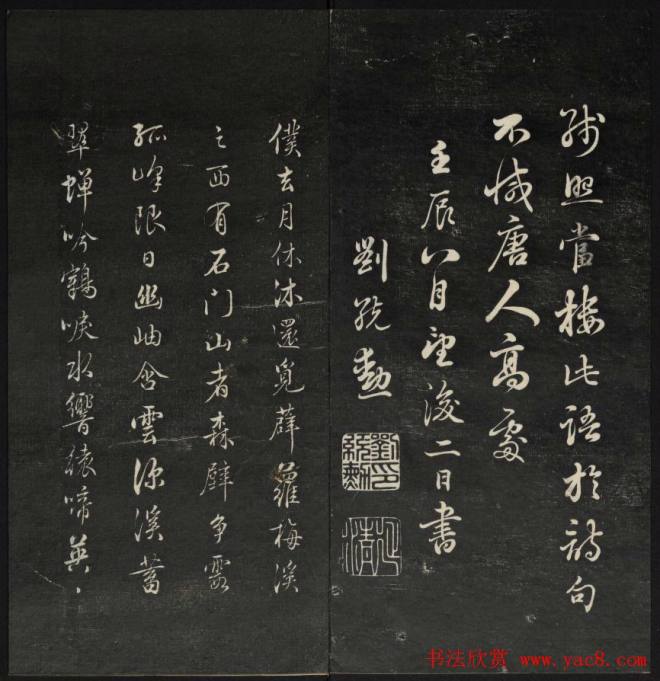 殘照當樓此語於詩句
不減唐人高處
壬辰八月望後二日書
劉統勳
劉統勳印
延清
僕去月休沐還覓薜蘿梅溪
之西有石門山者森壁爭霞
孤峰限日幽岫含雲深溪蓄
翠蟬吟鶴唳水響猿啼英々
书法欣赏 www.yac8.com